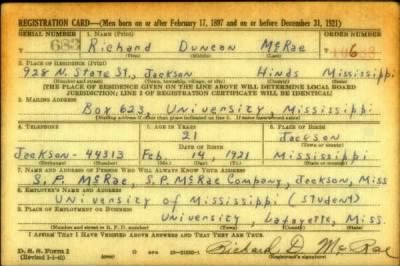 REGISTRATION CARD—(Men born on or after February 17, 1897 and on or before December 31, 1921)
SERIAL NUMBER 1. NAME (Print) ORDER NUMBER
683 Richard Duncan McRae
(First) (Middle) (Last)
2. PLACE OF RESIDENCE (Print)
928 N. State St., Jackson Hinds Mississippi
(Number and street) (Town, township, village, or city) (County) (State)
[THE PLACE OF RESIDENCE GIVEN ON THE LINE ABOVE WILL DETERMINE LOCAL BOARD
JURISDICTION; LINE 2 OF REGISTRATION CERTIFICATE WILL BE IDENTICAL]
3. MAILING ADDRESS
Box 623, University, Mississippi
[Mailing address if other than place indicated on line 2. If same insert word same]
4. TELEPHONE 5. AGE IN YEARS 6. PLACE OF BIRTH
21 Jackson
DATE OF BIRTH (Town or county)
Jackson - 44313 Feb. 14, 1921 Mississippi
(Exchange) (Number) (Mo.) (Day) (Yr.) (State or country)
7. NAME AND ADDRESS OF PERSON WHO WILL ALWAYS KNOW YOUR ADDRESS
S. P. McRae, S. P. McRae Company, Jackson, Miss
8. EMPLOYER'S NAME AND ADDRESS
University of Mississippi (student)
9. PLACE OF EMPLOYMENT OR BUSINESS
University, Lafayette, Miss.
(Number and street or R. F. D. number) (Town) (County) (State)
I AFFIRM THAT I HAVE VERIFIED ABOVE ANSWERS AND THAT THEY ARE TRUE.
D. S. S. Form 1
(Revised 1-1-42) Richard D. McRae
(Registrant's signature)